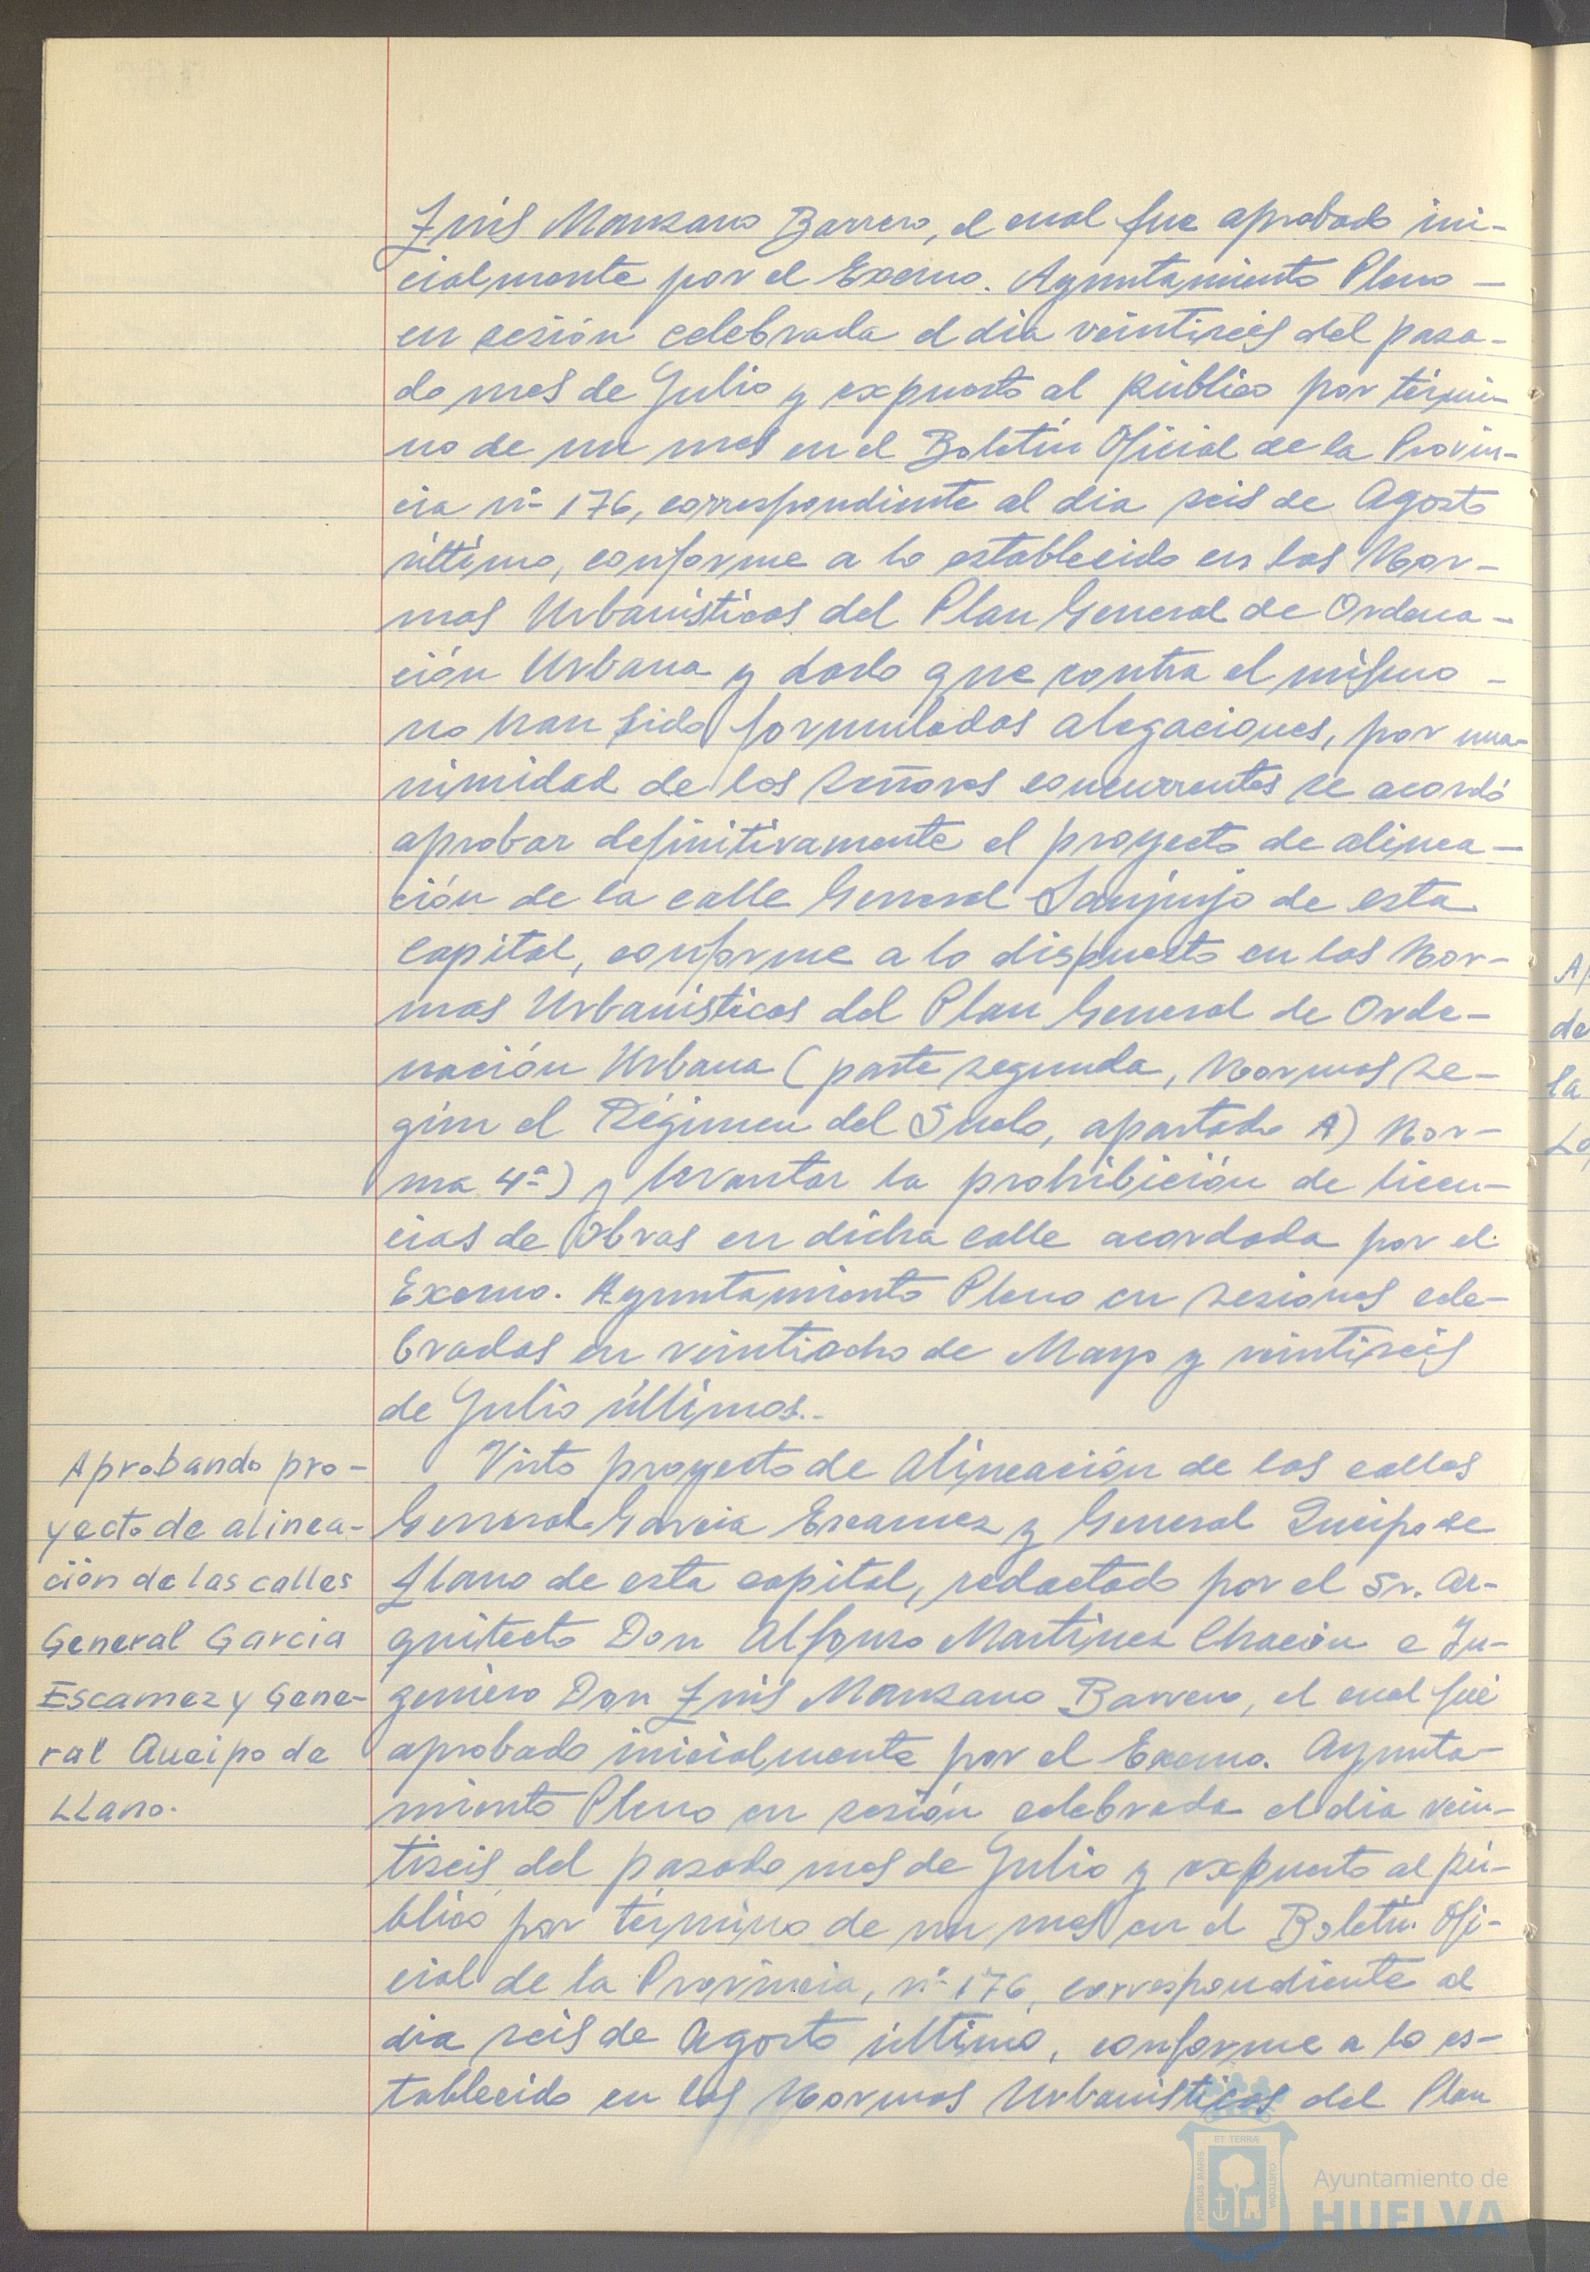 Luis Manzano Barrero, el cual fue aprobado ini-
cialmente por el Excmo. Ayuntamiento Pleno -
en sesión celebrada el dia veintiseis del pasa-
do mes de Julio y expuesto al público por térmi-
no de un mes en el Boletín Oficial de la Provin-
cia nº 176, correspondiente al dia seis de Agosto
último, conforme a lo establecido en las Nor-
mas Urbanisticas del Plan General de Ordena-
ción Urbana y dado que contra el mismo -
no han sido formuladas alegaciones, por una-
nimidad de los Señores concurrentes se acordó
aprobar definitivamente el proyecto de alinea-
ción de la calle General Sanjurjo de esta
capital, conforme a lo dispuesto en las Nor-
mas Urbanisticas del Plan General de Orde-
nación Urbana (parte segunda, Normas se-
gún el Régimen del Suelo, apartado A) Nor-
ma 4ª) y levantar la prohibición de licen-
cias de Obras en dicha calle acordada por el
Excmo. Ayuntamiento Pleno en sesiones cele-
bradas en veintiocho de Mayo y veintiseis
de Julio últimos..
Aprobando pro-
yecto de alinea-
ción de las calles
General Garcia
Escamez y Gene-
ral Queipo de
Llano.
Visto proyecto de Alineación de las calles
General Garcia Escamez y General Queipo de
Llano de esta capital, redactado por el Sr. Ar-
quitecto Don Alfonso Martinez Chacón e In-
geniero Don Luis Manzano Barrero, el cual fué
aprobado inicialmente por el Excmo. Ayunta-
miento Pleno en sesión celebrada el dia vein-
tiseis del pasado mes de Julio y expuesto al pú-
blico por término de un mes en el Boletín Ofi-
cial de la Provincia, nº 176, correspondiente al
dia seis de Agosto último, conforme a lo es-
tablecido en las Normas Urbanisticas del Plan
Ap
de
la
Lo
ET TERRÆ
PORTUS MARIS
CUSTODIA
Ayuntamiento de
HUELVA